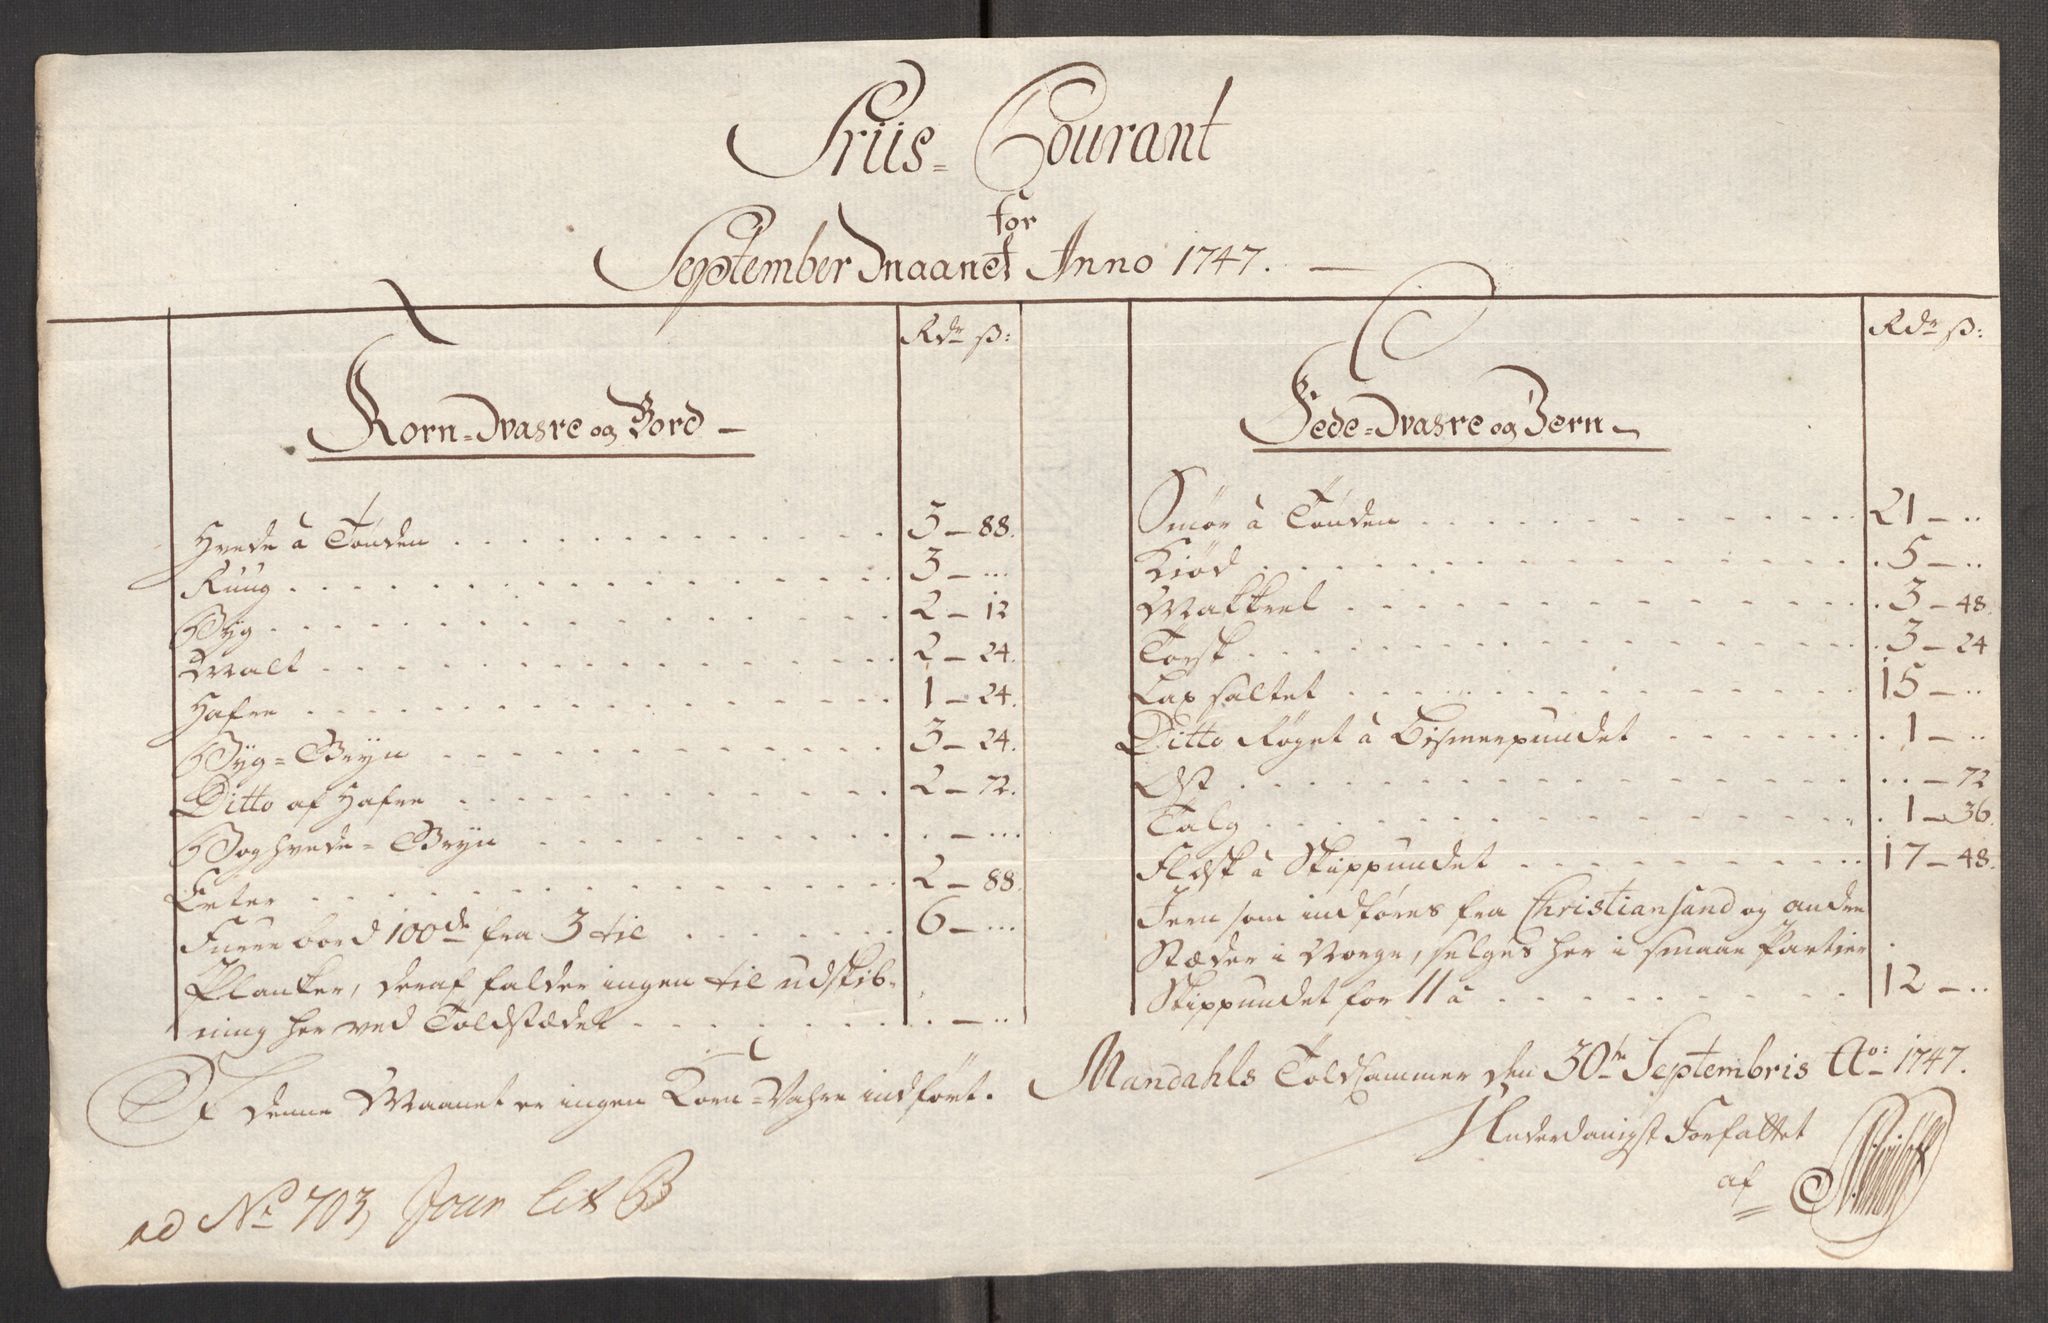 Priis-Courant
for
September Maanet Anno 1747.
Rdr ß:
Korn-Waare og Bord
Hvede à Tønden 5 — 88.
Ruug 3 — ...
Byg 2 — 12
Malt 2 — 24.
Hafre 1 — 24.
Byg-Gryn 3 — 24.
Ditto af Hafre 2 — 72.
Boghvede-Gryn . — ...
Erter 2 — 88.
Furre bord 100de fra 3 til 6 — ...
Planker, deraf falder ingen til udskib-
ning her ved Toldstædet . — ..
Rdr ß:
Fede-Waare og Jern
Smør à Tønden 21 — ..
Kiød 5 — ..
Makkrel 3 — 48.
Torsk 3 — 24
Lax saltet 15 — ..
Ditto Røget à Bismerpundet 1 — ..
Ost .. — 72
Talg 1 — 36.
Flæsk à Skippundet 17 — 48.
Jern som indføres fra Christiansand og andre
Stæder i Norge, selges her i smaae Partier
Skippundet for 11 à 12 — ..
I denne Maanet er ingen Korn-Vahre indført.
Mandahls Toldcammer den 30te Septembris Ao: 1747.
Underdanigst Forfattet
af
ad No 703, Jour Lit B